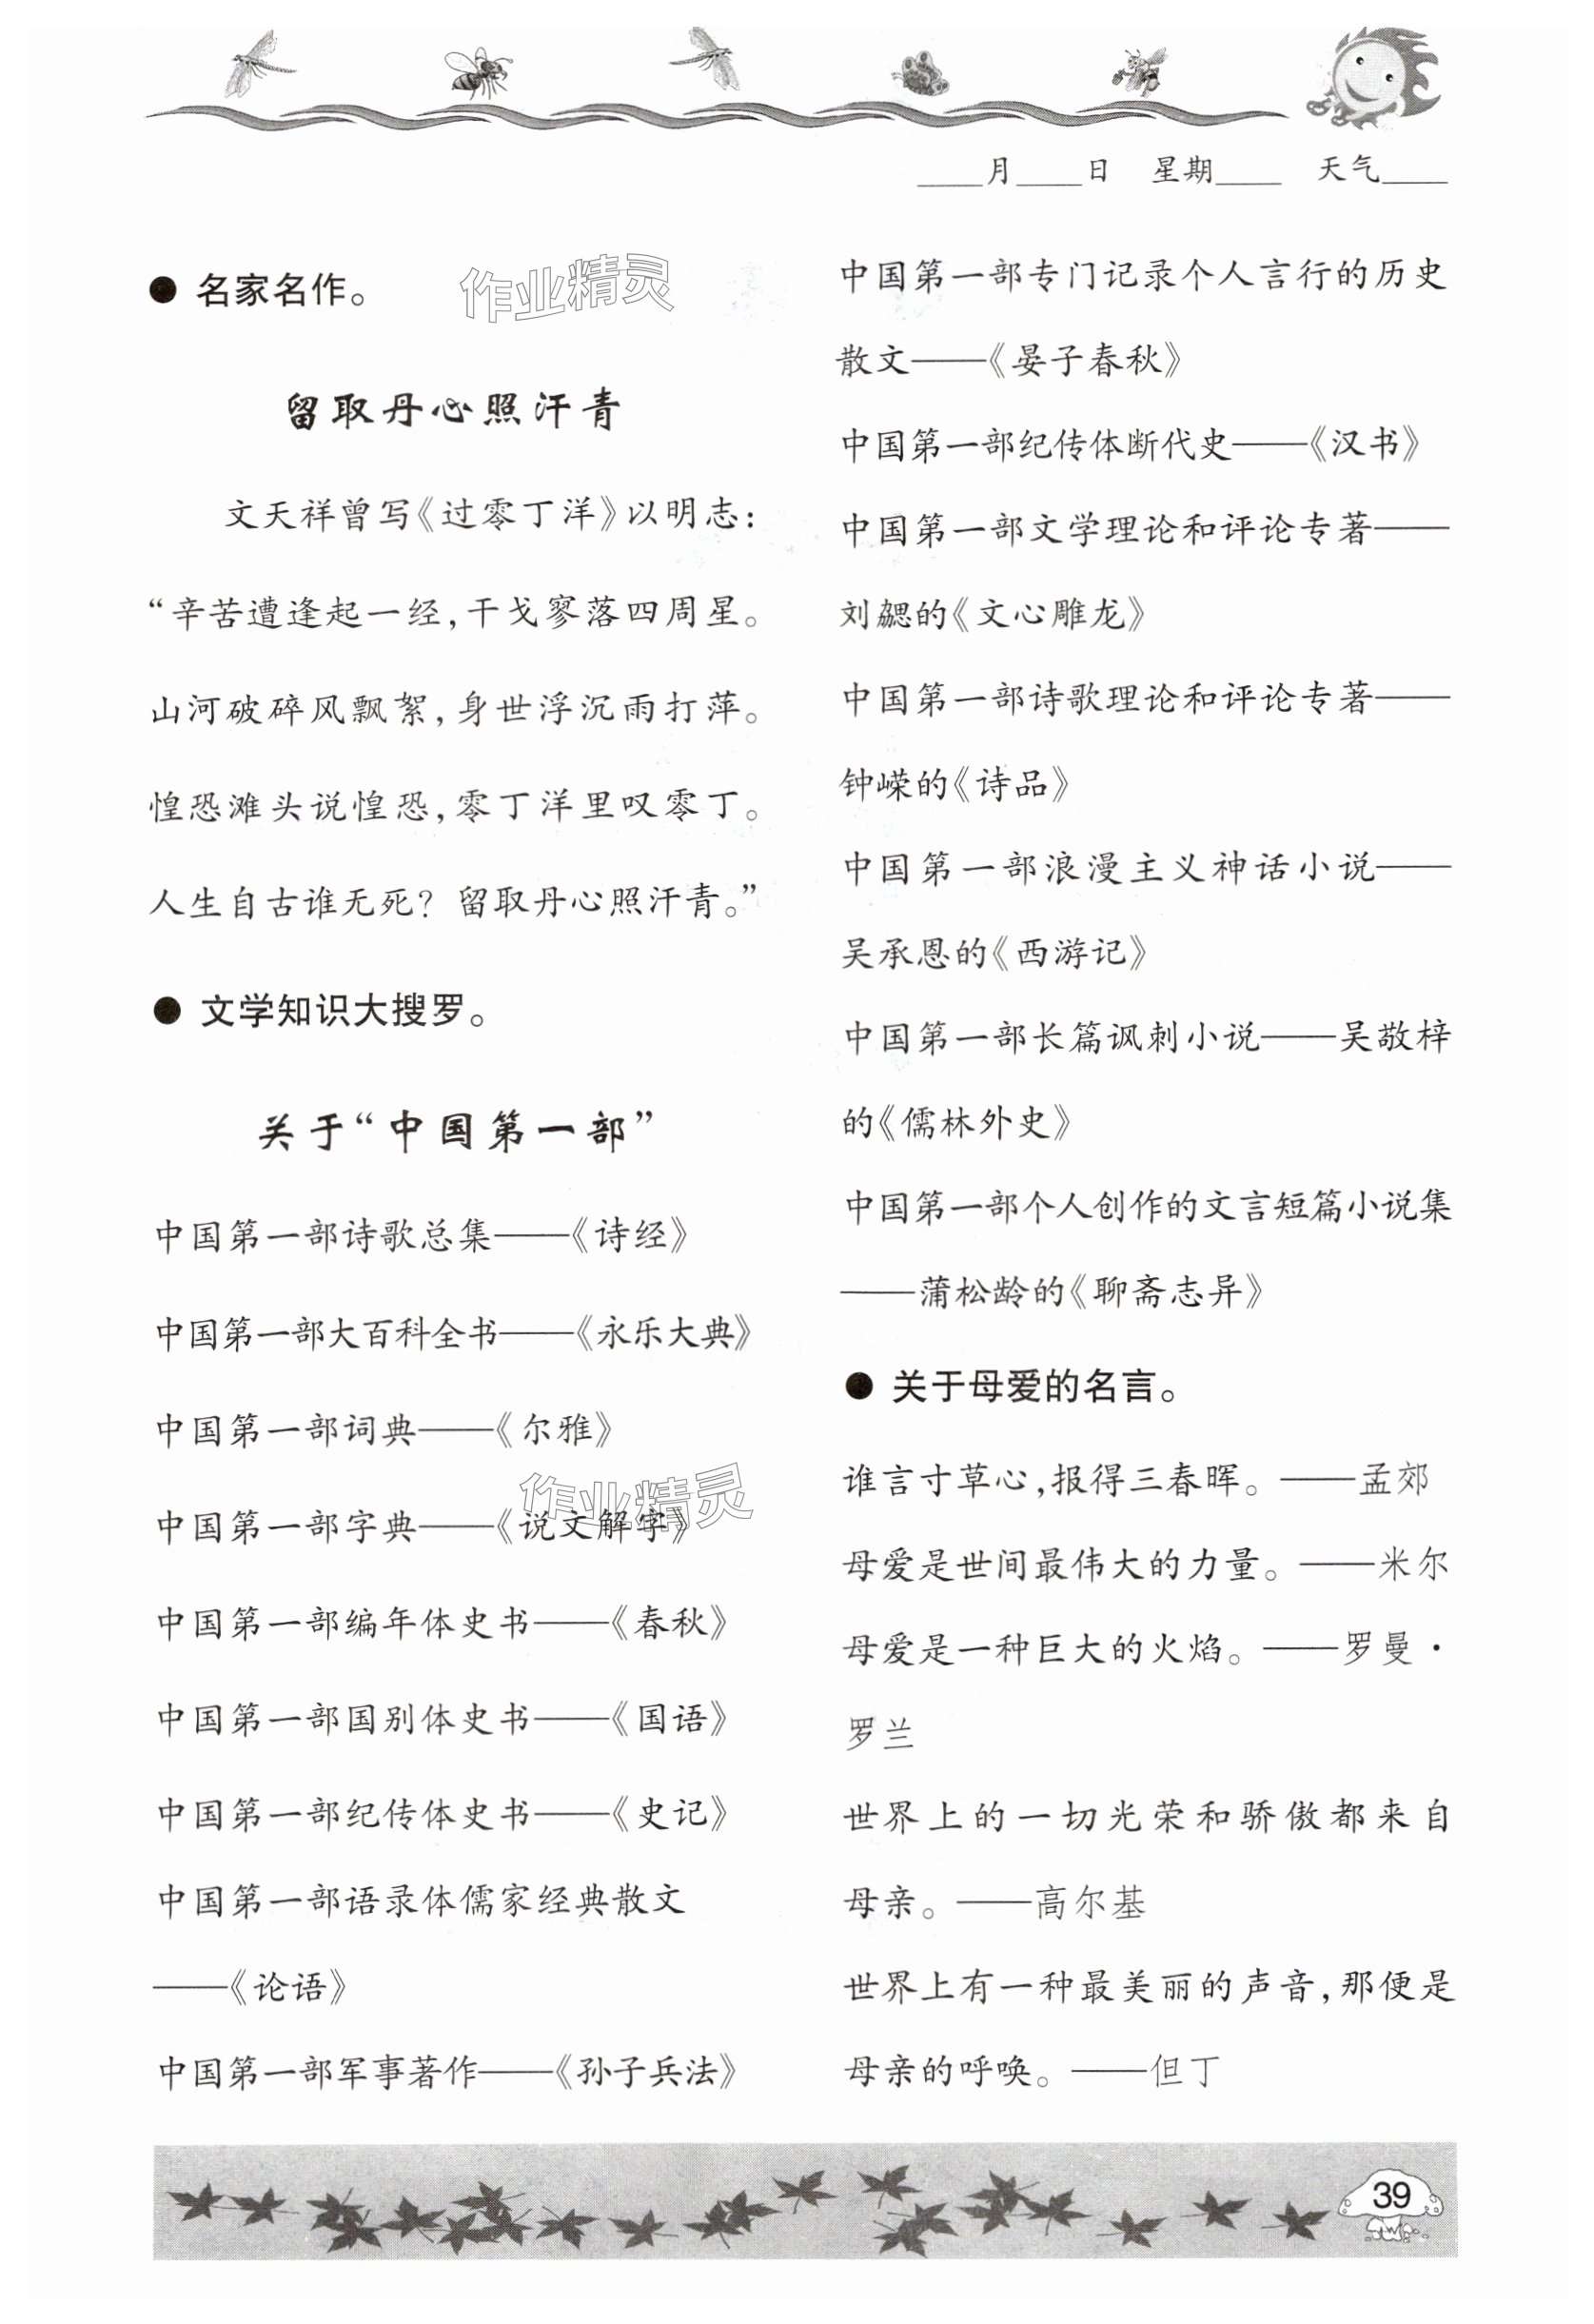 ____月____日 星期____ 天气____
● 名家名作。
作业精灵
留取丹心照汗青
文天祥曾写《过零丁洋》以明志：
“辛苦遭逢起一经，干戈寥落四周星。
山河破碎风飘絮，身世浮沉雨打萍。
惶恐滩头说惶恐，零丁洋里叹零丁。
人生自古谁无死？留取丹心照汗青。”
● 文学知识大搜罗。
关于“中国第一部”
中国第一部诗歌总集——《诗经》
中国第一部大百科全书——《永乐大典》
中国第一部词典——《尔雅》
作业精灵
中国第一部字典——《说文解字》
中国第一部编年体史书——《春秋》
中国第一部国别体史书——《国语》
中国第一部纪传体史书——《史记》
中国第一部语录体儒家经典散文
——《论语》
中国第一部军事著作——《孙子兵法》
中国第一部专门记录个人言行的历史
散文——《晏子春秋》
中国第一部纪传体断代史——《汉书》
中国第一部文学理论和评论专著——
刘勰的《文心雕龙》
中国第一部诗歌理论和评论专著——
钟嵘的《诗品》
中国第一部浪漫主义神话小说——
吴承恩的《西游记》
中国第一部长篇讽刺小说——吴敬梓
的《儒林外史》
中国第一部个人创作的文言短篇小说集
——蒲松龄的《聊斋志异》
● 关于母爱的名言。
谁言寸草心，报得三春晖。——孟郊
母爱是世间最伟大的力量。——米尔
母爱是一种巨大的火焰。——罗曼·
罗兰
世界上的一切光荣和骄傲都来自
母亲。——高尔基
世界上有一种最美丽的声音，那便是
母亲的呼唤。——但丁
39